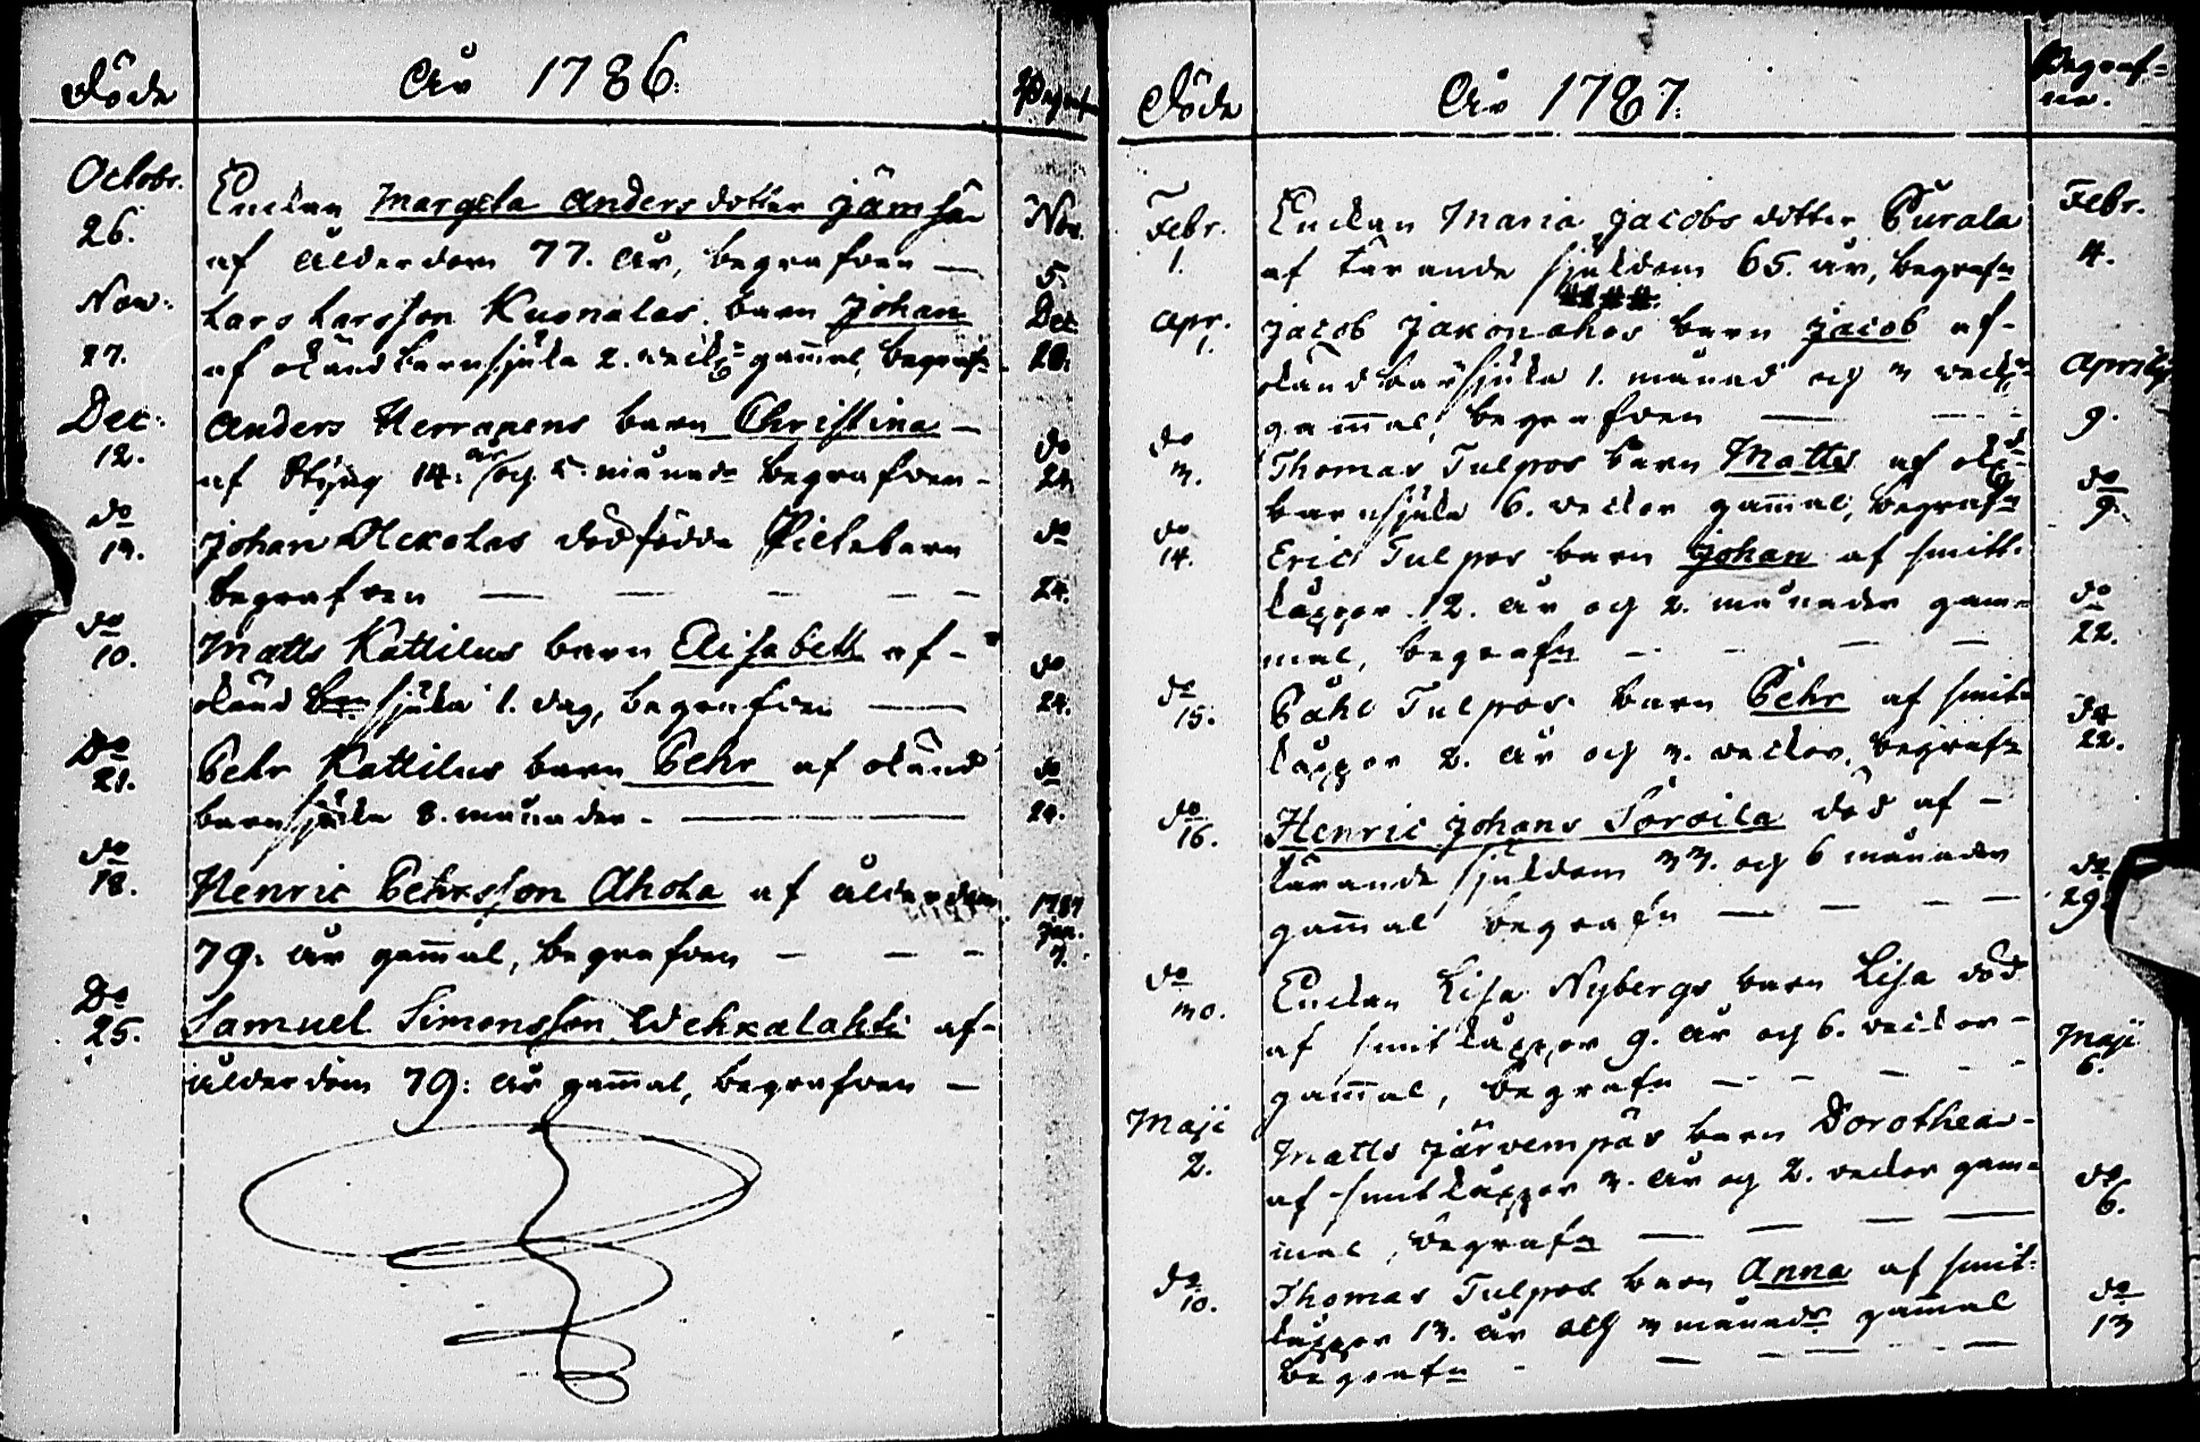 Döde
År 1786.
Begrafne
Octobr.
26.
Enckan Margeta Andersdotter Jämsä
af ålderdom 77. år, begrafven —
Nov.
5.
Nov.
27.
Lars Larsson Kuonalas barn Johan
af okänd barnsjuka 2. veck. gammal, begrafn
Dec.
20.
Dec.
12.
Anders Herrapens barn Christina —
af Styng 14. år och 5. månadr begrafven -
do
24.
do
13.
Johan Olckolas dödfödde Pickebarn
begrafven — — — — —
do
24.
do
10.
Matts Kattilus barn Elisabeth af -
okänd sjuka 1. dag, begrafven —
do
24.
Do
21.
Pehr Kattilus barn Pehr af okänd
barnsjuka 8. månader. —
do
24.
do
18.
Henric Pehrsson Ahola af ålderdom
79. år gammal, begrafven — — —
1787
Jan.
7.
Do
25.
Samuel Simonsson Wehkalahti af -
ålderdom 79: år gammal, begrafven —
Döde
År 1787.
Begraf=
ne.
Febr.
1.
Enckan Maria Jacobs dotter Purala
af tärande sjukdom 65. år, begrafn
Febr.
4.
Apr.
1.
Jacob Jakonahos barn Jacob af -
okänd barnsjuka 1. månad och 3 veck.
gammal, begrafven —
Aprilis
9.
do
3.
Thomas Tulpos barn Matts af okd
barnsjuka 6. veckor gammal, begrafn
do
9.
do
14.
Eric Tulpos barn Johan af smitt.
kåppor 12. år och 2. månader gam=
mal, begrafn — — — —
do
22.
do
15.
Påhl Tulpos barn Pehr af smit=
kåppor 2. år och 3. veckor, begrafn
do
22.
do
16.
Henric Johans Torvila död af -
tärande sjukdom 33. och 6 månader
gammal begrafn — — — —
do
29.
do
30.
Enckan Lisa Nybergs barn Lisa död
af smitkåppor 9. år och 6. veckor -
gammal, begrafn — — — —
Maji
6.
Maji
2.
Matts Järvempäs barn Dorothea -
af smitkåppor 3. år och 2. veckor gam=
mal, begrafn — — — —
do
6.
do
10.
Thomas Tulpos barn Anna af smit=
kåppor 13. år och 3 månadr gammal
begrafn - — — — —
do
13